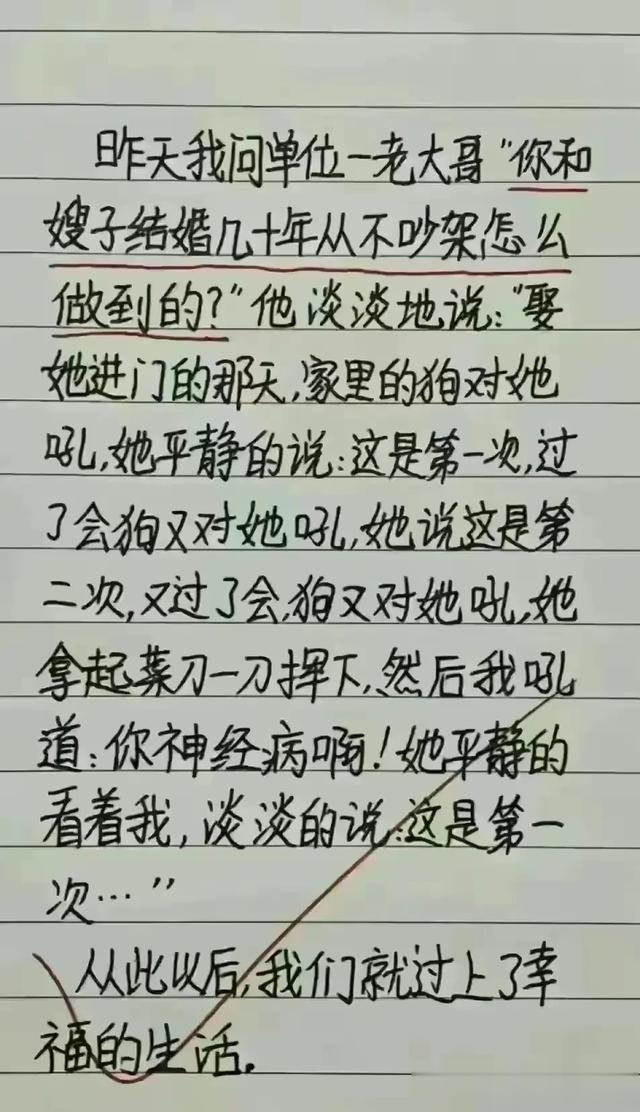 昨天我问单位一老大哥“你和
嫂子结婚几十年从不吵架怎么
做到的?”他淡淡地说:“娶
她进门的那天,家里的狗对她
吼,她平静的说:这是第一次,过
了会狗又对她吼,她说这是第
二次,又过了会,狗又对她吼,她
拿起菜刀一刀挥下,然后我吼
道:你神经病啊!她平静的
看着我,淡淡的说:这是第一
次…”
从此以后,我们就过上了幸
福的生活.